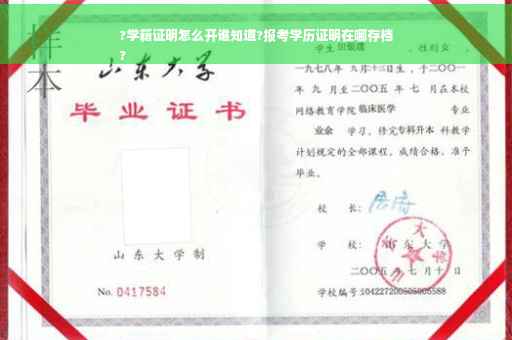 ?学籍证明怎么开谁知道?报考学历证明在哪存档
?
样本
山东大学
毕业证书
山东大学制
No. 0417584
学生 田银莲 ,性别女 ,
一九七八年 九月十二日生,于二〇〇一
年 九 月至二〇〇五 年 七 月在本校
网络教育学院 临床医学 专业
业余 学习,修完专科升本 科教学
计划规定的全部课程,成绩合格,准予
毕业。
校 长:
学 校: 山东大学
二〇〇五年七月十日
学校编号:104227200505005588